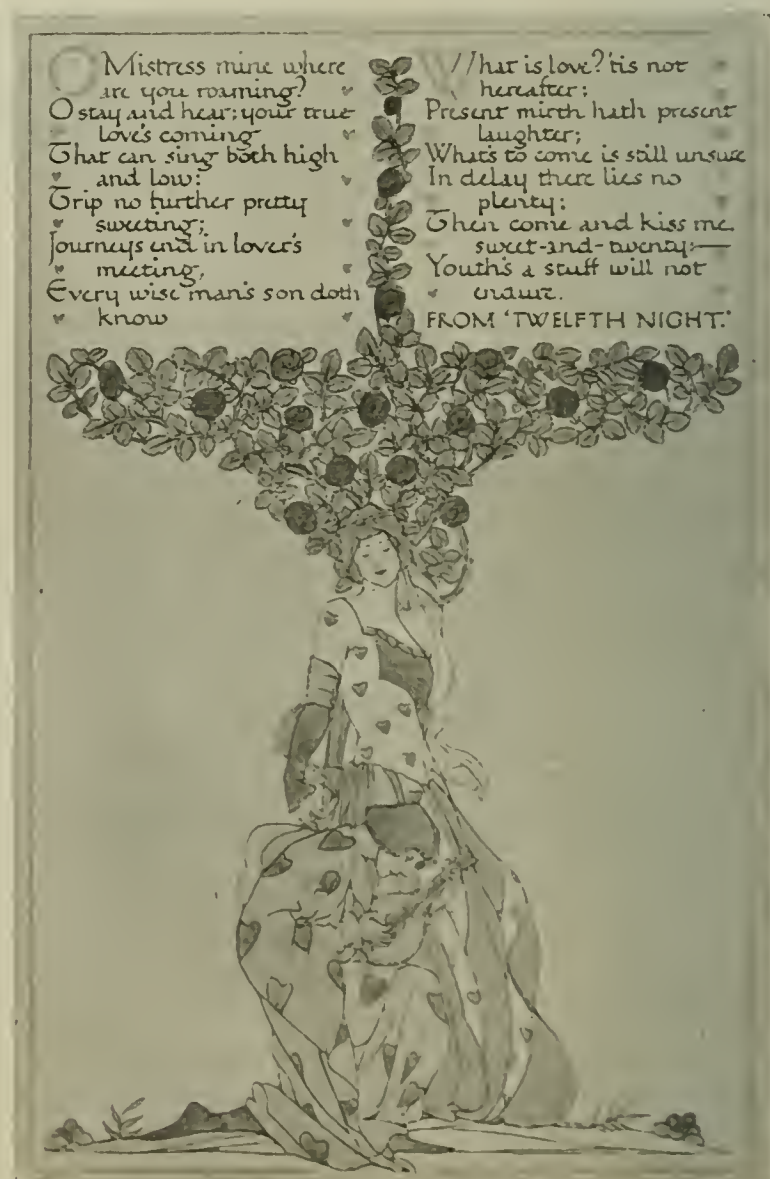 O Mistress mine where
are you roaming?
O stay and hear; your true
love's coming
That can sing both high
and low:
Trip no further pretty
sweeting;
Journeys end in lover's
meeting,
Every wise man's son doth
know
What is love? 'tis not
hereafter;
Present mirth hath present
laughter;
What's to come is still unsure
In delay there lies no
plenty;
Then come and kiss me
sweet-and-twenty:—
Youth's a stuff will not
endure.
FROM 'TWELFTH NIGHT.'